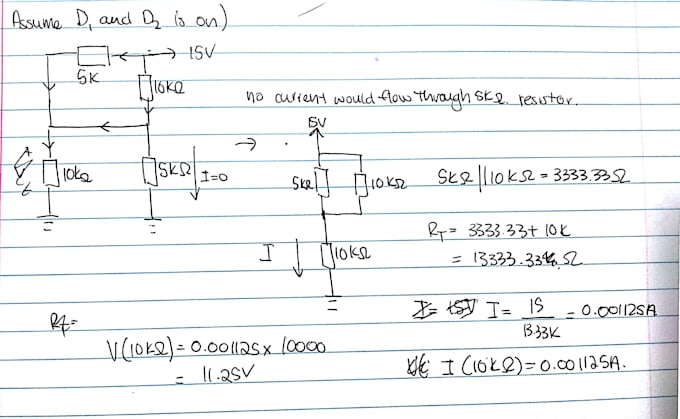 Assume D₁ and D₂ is on)
15V
5K
10kΩ
no current would flow through 5kΩ resistor.
15V
10kΩ
5kΩ
I=0
5kΩ
10kΩ
5kΩ||10kΩ = 3333.33Ω
R_T = 3333.33 + 10K
= 13333.33 Ω
I
10kΩ
I = 15/13.33K = 0.001125A
V(10kΩ) = 0.001125 x 10000
= 11.25V
I(10kΩ) = 0.001125A.